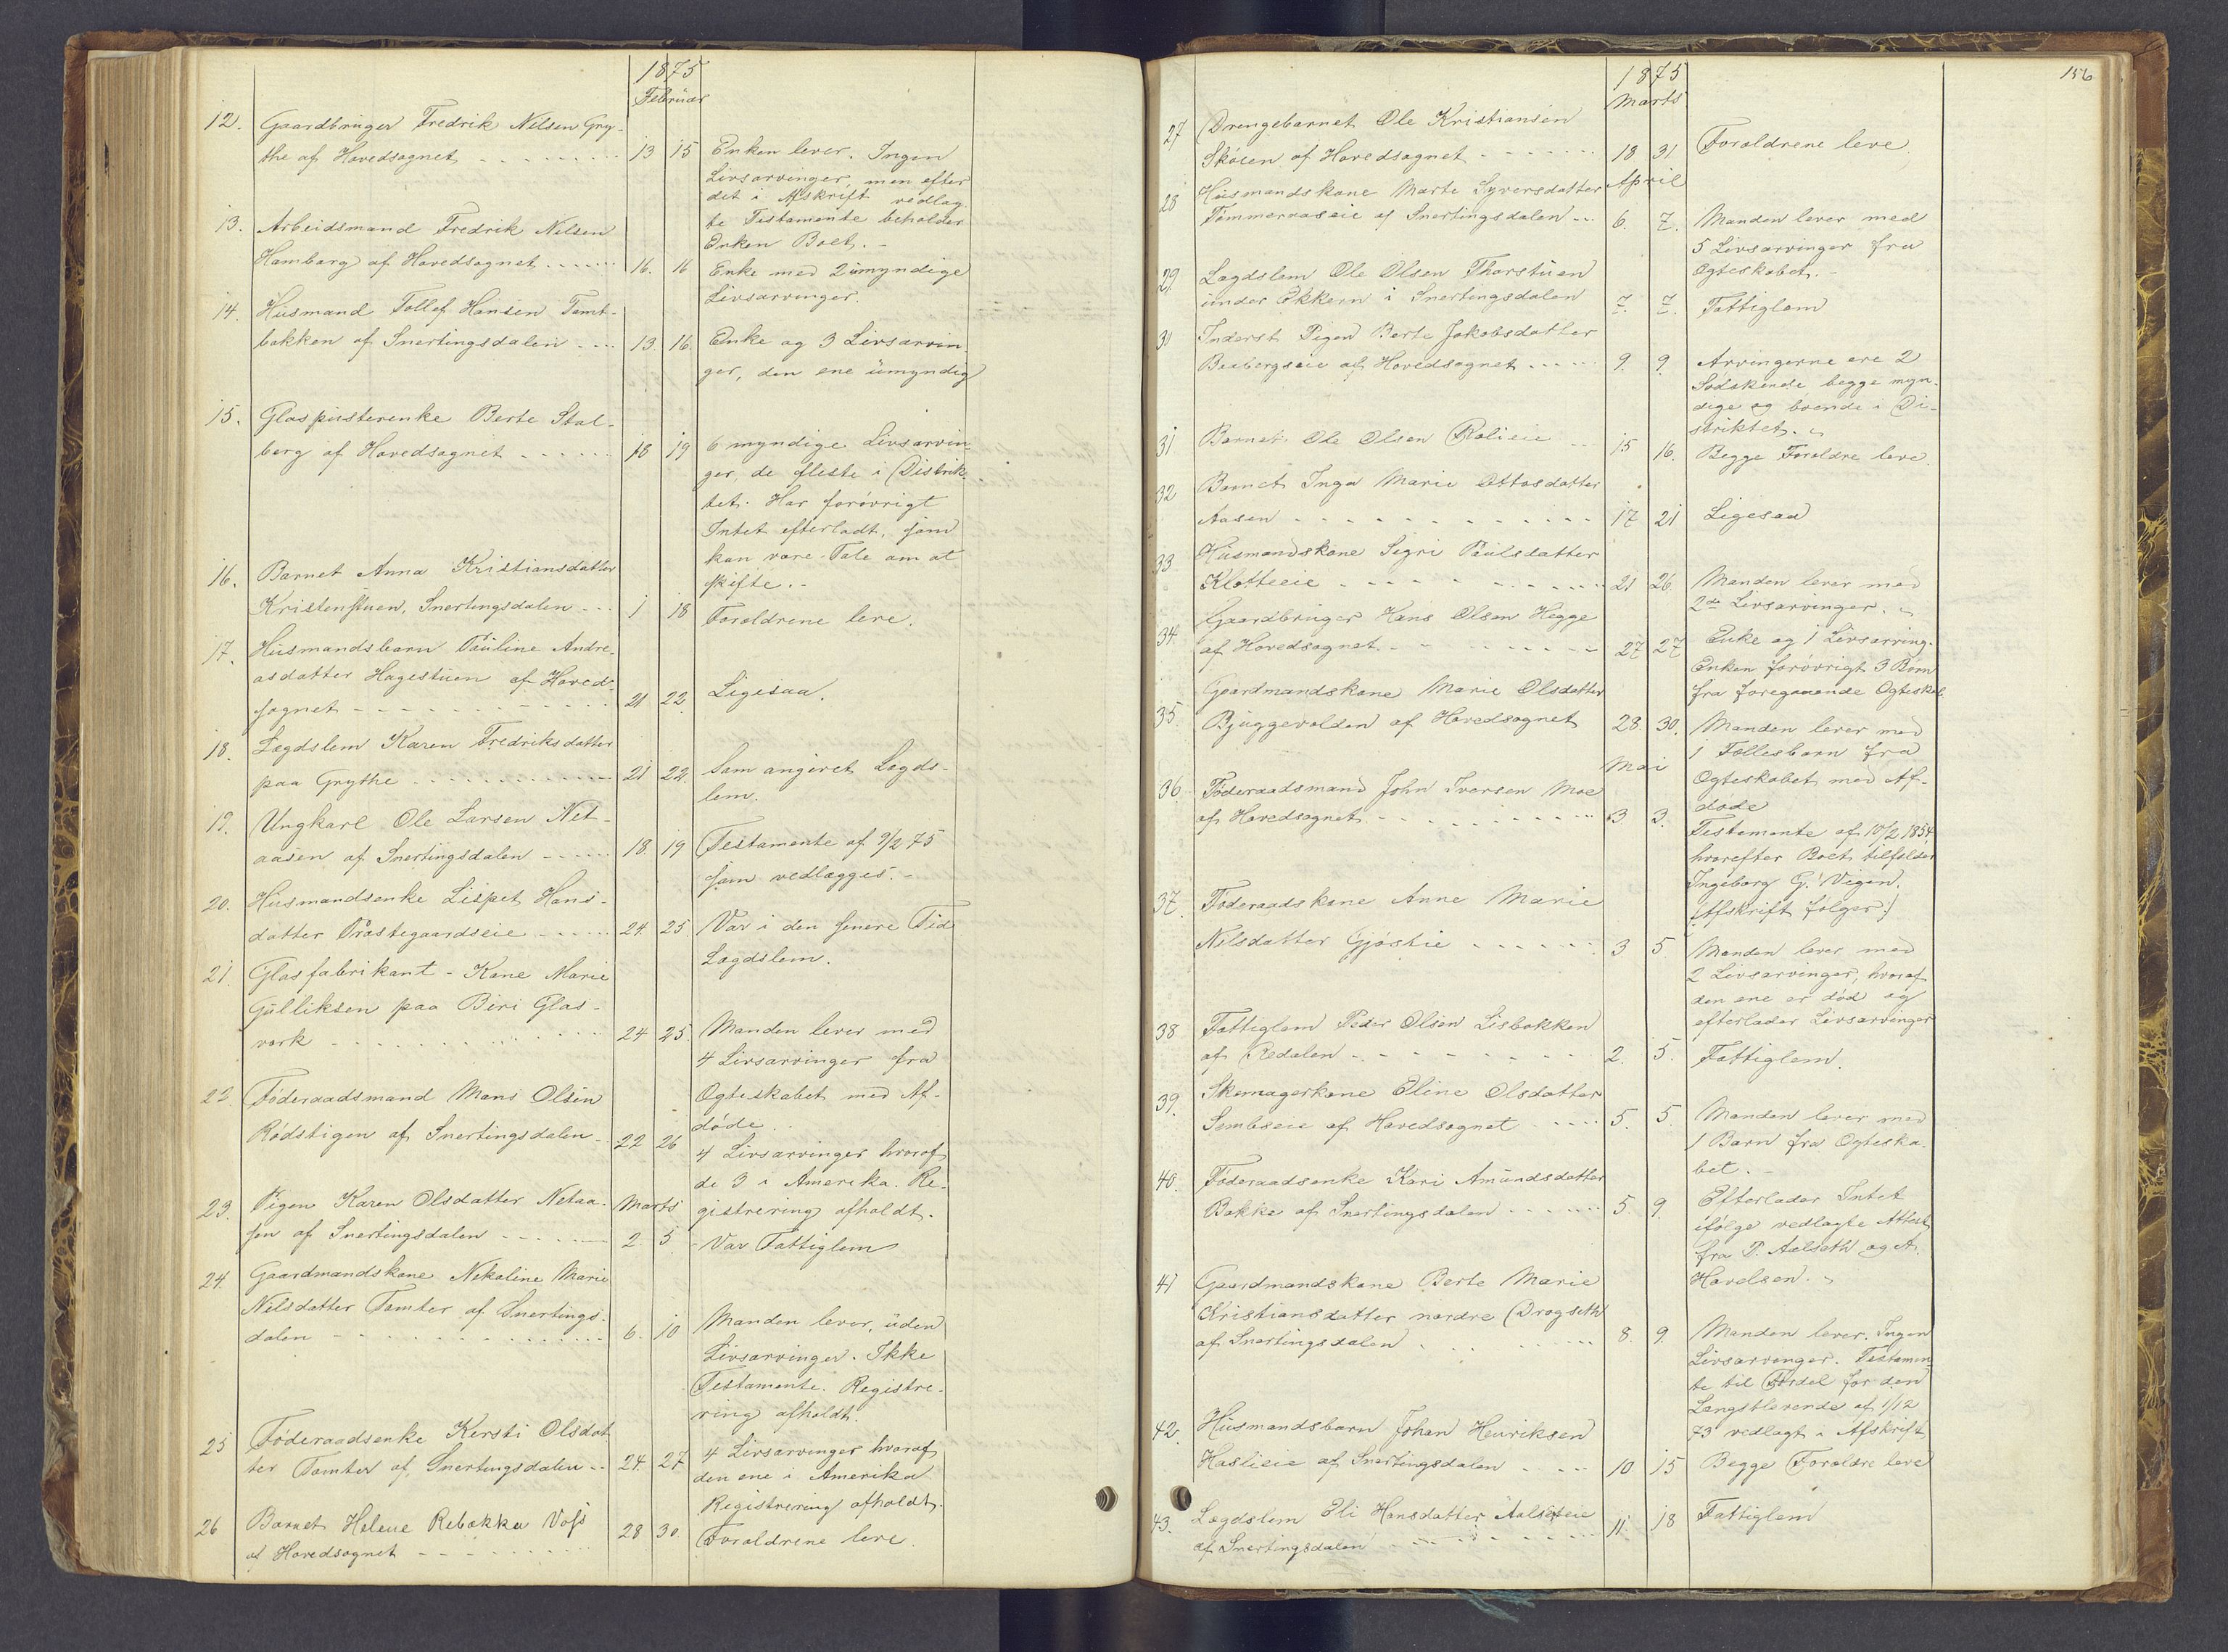 1875
Februar
12. Gaardbruger Fredrik Nilsen Gry-
the af Hovedsognet - - - - - - - 13 15 Enken lever. Ingen
Livsarvinger, men efter
det i Afskrift vedlag-
te Testamente beholder
Enken Boet. -
13. Arbeidsmand Fredrik Nilsen
Hamborg af Hovedsognet - - - - 16. 16 Enke med 2 umyndige
Livsarvinger.
14. Husmand Tollef Hansen Tomt-
bakken af Snertingsdalen - - - 13. 16. Enke og 3 Livsarvin-
ger, den ene umyndig
15. Glaspusterenke Berte Stal-
berg af Hovedsognet - - - - - 18 19 6 myndige Livsarvin-
ger, de fleste i Distrik-
tet. Har forøvrigt
Intet efterladt, som
kan være Tale om at
skifte. -
16. Barnet Anna Kristiansdatter
Kristenstuen, Snertingsdalen - - 1 18 Forældrene leve.
17. Husmandsbarn Pauline Andre-
asdatter Hagestuen af Hoved-
sognet - - - - - - - - - - 21 22. Ligesaa.
18. Lægdslem Karen Fredriksdatter
paa Grythe - - - - - - - - - 21 22. Som angivet Lægds-
lem.
19. Ungkarl Ole Larsen Net-
aasen af Snertingsdalen - - - - 18. 19 Testamente af 9/2 75
som vedlægges. -
20. Husmandsenke Lispet Hans-
datter Præstegaardseie - - - - 24. 25. Var i den senere Tid
Lægdslem.
21. Glasfabrikant-Kone Marie
Gulliksen paa Biri Glas-
værk - - - - - - - - - - 24 25. Manden lever med
4 Livsarvinger fra
Ægteskabet med Af-
døde.
22. Føderaadsmand Mons Olsen
Rødstigen af Snertingsdalen - 22 26 4 Livsarvinger hvoraf
de 3 i Amerika. Re-
gistrering afholdt.
Marts
23. Pigen Karen Olsdatter Netaa-
sen af Snertingsdalen - - - - - 2. 5. Var Fattiglem
24. Gaardmandskone Nekoline Marie
Nilsdatter Tomter af Snertings-
dalen - - - - - - - - - - - - 6. 10 Manden lever, uden
Livsarvinger. Ikke
Testamente. Registre-
ring afholdt.
25 Føderaadsenke Kersti Olsdat-
ter Tomter af Snertingsdalen - - 24. 27. 4 Livsarvinger hvoraf
den ene i Amerika
Registrering afholdt.
26 Barnet Helene Rebekka Voss
af Hovedsognet - - - - - - - 28 30. Forældrene leve.
156
1875
Marts
27 Drengebarnet Ole Kristiansen
Skøien af Hovedsognet - - - - - - 18 31 Forældrene leve
April
28 Husmandskone Marte Syversdatter
Tømmeraaseie af Snertingsdalen - - 6. 7. Manden lever med
5 Livsarvinger fra
Ægteskabet. -
29. Lægdslem Ole Olsen Thorstuen
under Økkern i Snertingsdalen 7. 7. Fattiglem
31 Inderst Pigen Berte Jakobsdatter
Baabergseie af Hovedsognet - - - - 9. 9. Arvingerne ere 2
Sødskende begge myn-
dige og boende i Di-
striktet.
31 Barnet Ole Olsen Rolieie - - 15 16. Begge Forældre leve.
32 Barnet Inga Marie Ottosdatter
Aasen - - - - - - - - - - - - 17 21 Ligesaa
33 Husmandskone Sigri Paulsdatter
Klotteeie - - - - - - - - - - 21 26. Manden lever med
2de Livsarvinger.
34. Gaardbruger Hans Olsen Hegge
af Hovedsognet - - - - - - - 27 27 Enke og 1 Livsarving.
Enken forøvrigt 3 Børn
fra foregaaende Ægteskab.
35. Gaardmandskone Marie Olsdatter
Bjuggevolden af Hovedsognet 28. 30. Manden lever med
1 Fællesbarn fra
Ægteskabet med Af-
døde
Mai
36. Føderaadsmand John Iversen Moe
af Hovedsognet - - - - - - - - - 3 3. Testamente af 10/2 1854
hvorefter Boet tilfalder
Ingeborg G. Vigen.
(Afskrift følger.)
37. Føderaadskone Anne Marie
Nilsdatter Gjøstie - - - - - - 3 5 Manden lever med
2 Livsarvinger, hvoraf
den ene er død og
efterlader Livsarvinger
38 Fattiglem Peder Olsen Lisbakken
af Redalen - - - - - - - - - 2. 5. Fattiglem.
39. Skomagerkone Eline Olsdatter
Sembseie af Hovedsognet - - - - 5. 5. Manden lever med
1 Barn fra Ægteska-
bet. -
40. Føderaadsenke Kari Amundsdatter
Bakke af Snertingsdalen - - - - - 5. 9. Efterlader Intet
ifølge vedlagte Attest
fra P. Aalseth og A.
Havelsen.
41 Gaardmandskone Berte Marie
Kristiansdatter nordre Drogseth
af Snertingsdalen - - - - - - 8. 9. Manden lever. Ingen
Livsarvinger. Testamen-
te til Fordel for den
Længstlevende af 1/12
73 vedlagt i Afskrift
42. Husmandsbarn Johan Henriksen
Haslieie af Snertingsdalen - - - 10 15 Begge Forældre leve
43. Lægdslem Eli Hansdatter Aalseteie
af Snertingsdalen - - - - - - - - 11 18 Fattiglem